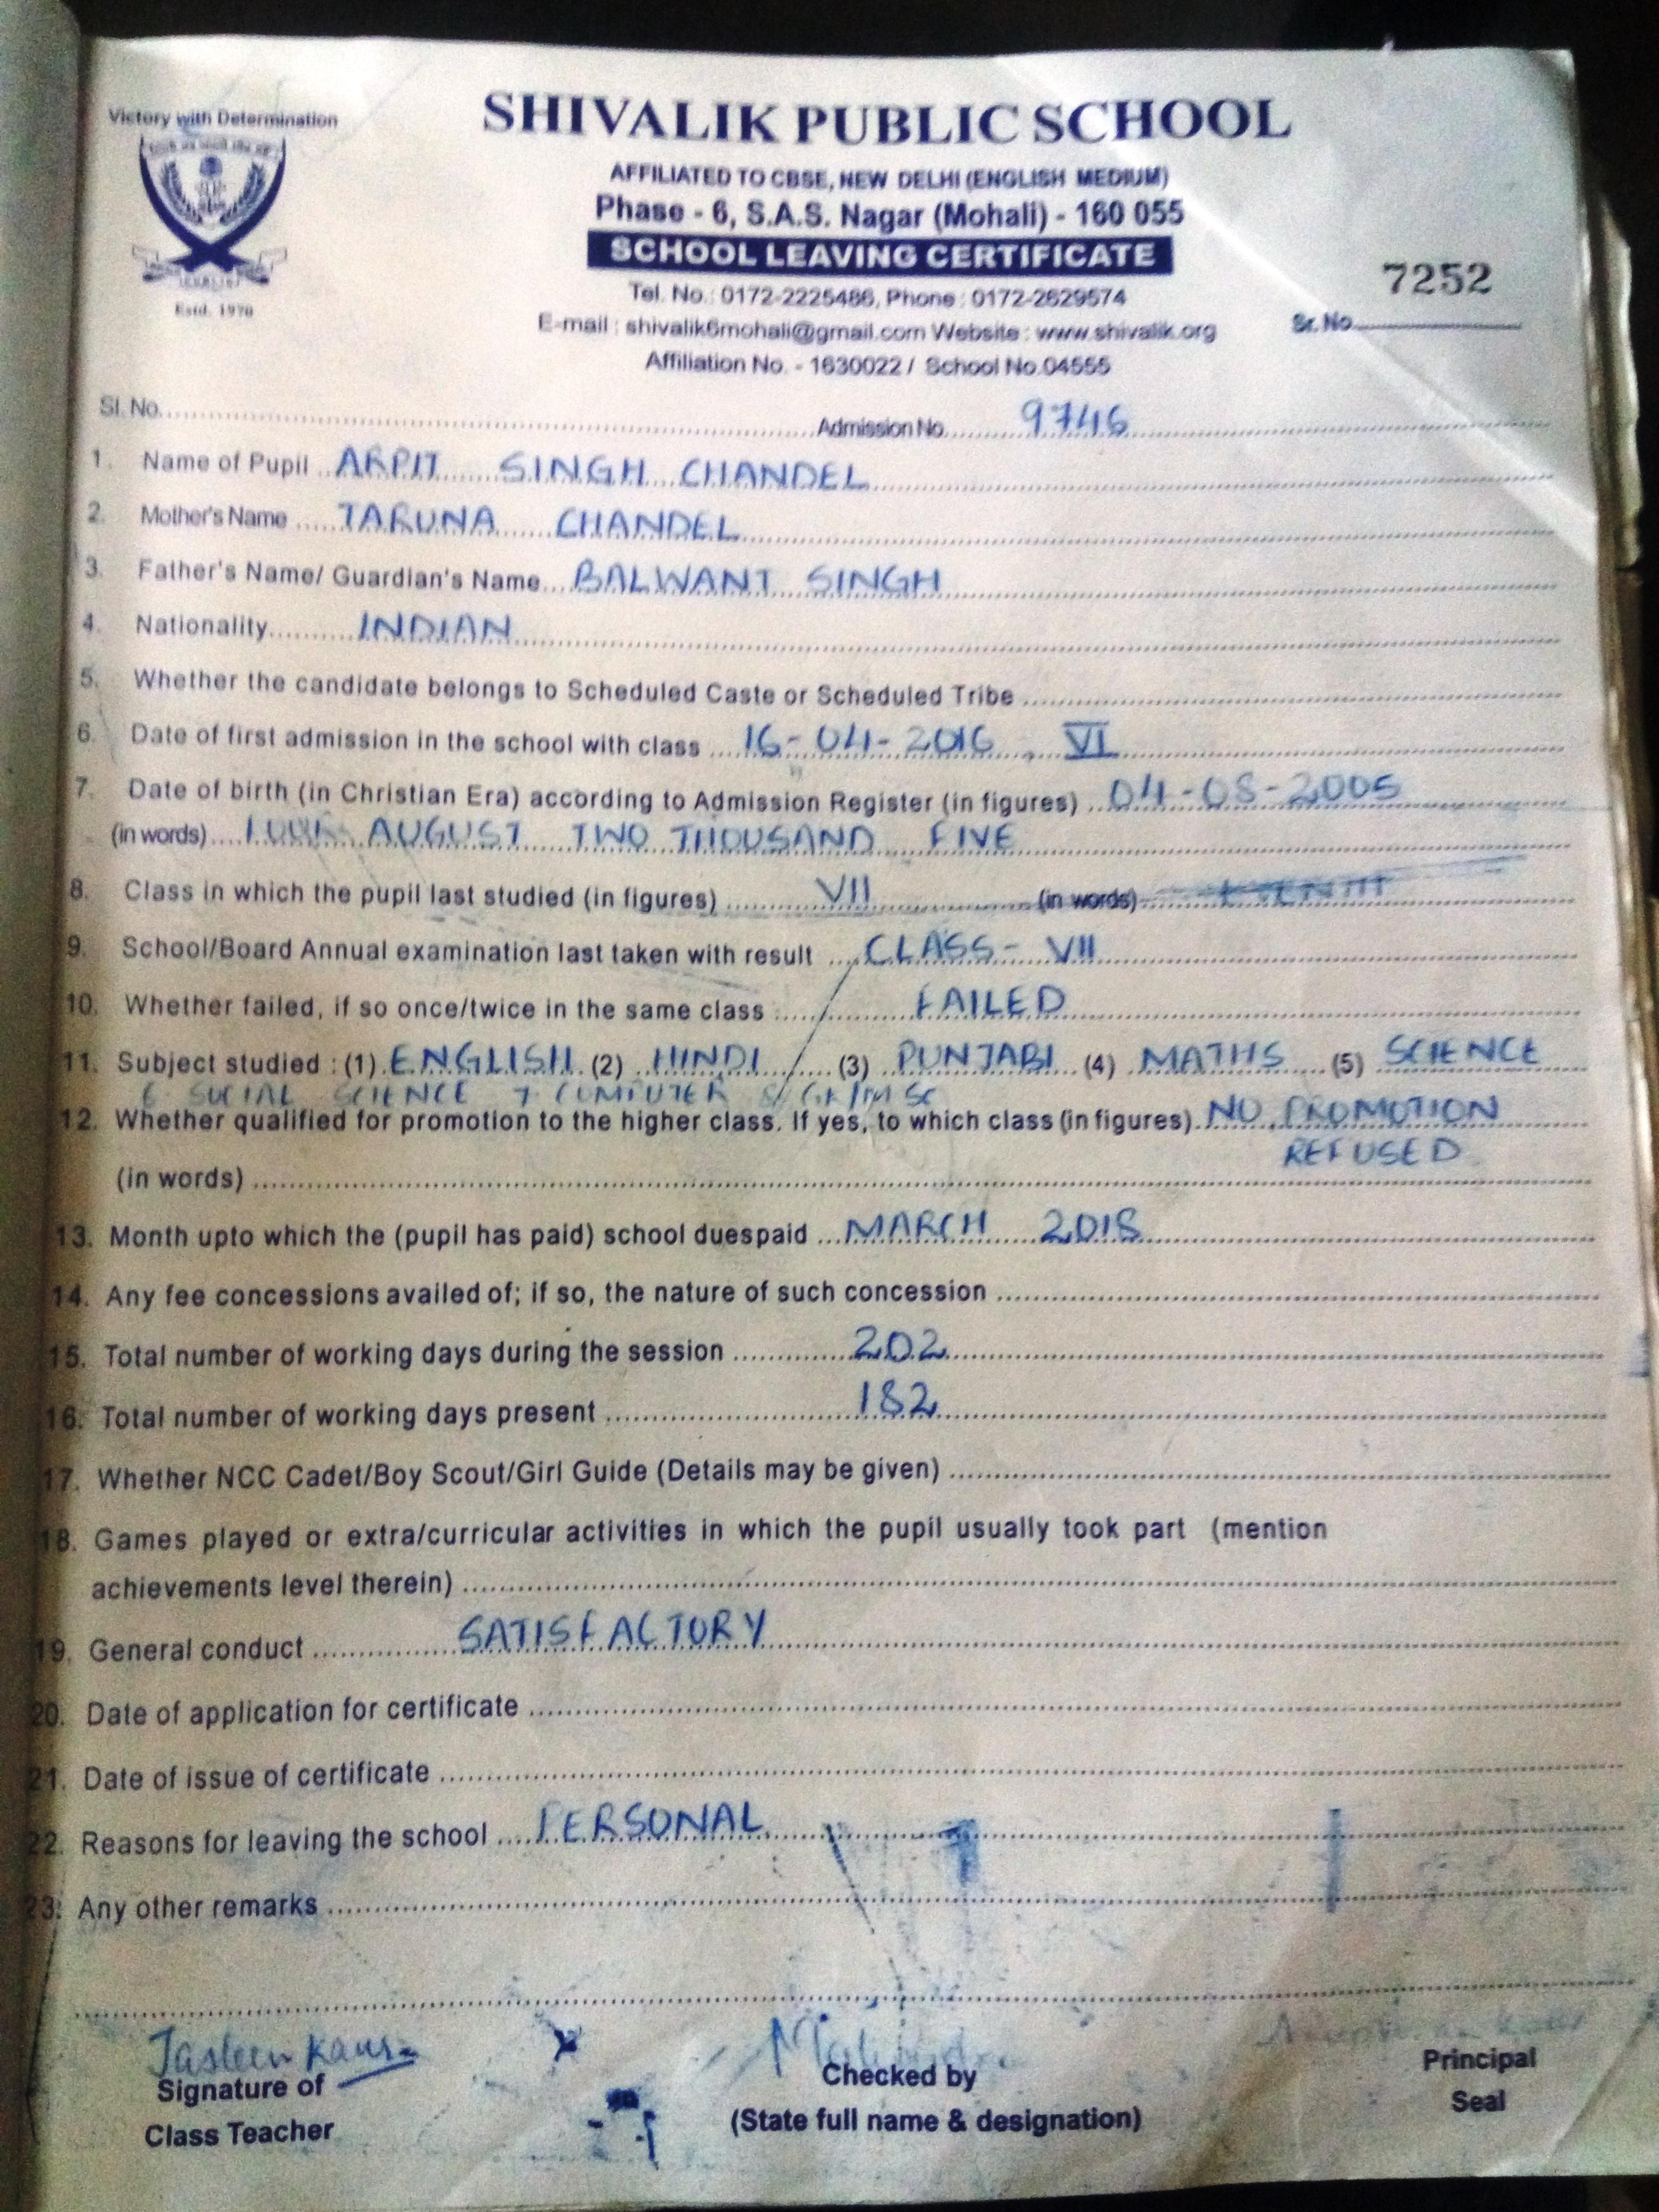 Victory with Determination
SHIVALIK PUBLIC SCHOOL
AFFILIATED TO CBSE, NEW DELHI (ENGLISH MEDIUM)
Phase - 6, S.A.S. Nagar (Mohali) - 160 055
SCHOOL LEAVING CERTIFICATE
Estd. 1970
Tel. No.: 0172-2225486, Phone : 0172-2629574
7252
E-mail : shivalik6mohali@gmail.com Website : www.shivalik.org
Sr. No
Affiliation No. - 1630022 / School No.04555
Sl. No. Admission No. 9746
1. Name of Pupil ARPIT SINGH CHANDEL
2. Mother's Name TARUNA CHANDEL
3. Father's Name/ Guardian's Name BALWANT SINGH
4. Nationality INDIAN
5. Whether the candidate belongs to Scheduled Caste or Scheduled Tribe
6. Date of first admission in the school with class 16-04-2016, VI
7. Date of birth (in Christian Era) according to Admission Register (in figures) 04-08-2005
(in words) FOUR AUGUST TWO THOUSAND FIVE
8. Class in which the pupil last studied (in figures) VII (in words)
9. School/Board Annual examination last taken with result CLASS- VII
10. Whether failed, if so once/twice in the same class FAILED
11. Subject studied : (1) ENGLISH (2) HINDI (3) PUNJABI (4) MATHS (5) SCIENCE
6 SOCIAL SCIENCE 7 COMPUTER 8
12. Whether qualified for promotion to the higher class. If yes, to which class (in figures) NO PROMOTION
REFUSED
(in words)
13. Month upto which the (pupil has paid) school duespaid MARCH 2018
14. Any fee concessions availed of; if so, the nature of such concession
15. Total number of working days during the session 202
16. Total number of working days present 182
17. Whether NCC Cadet/Boy Scout/Girl Guide (Details may be given)
18. Games played or extra/curricular activities in which the pupil usually took part (mention
achievements level therein)
19. General conduct SATISFACTORY
20. Date of application for certificate
21. Date of issue of certificate
22. Reasons for leaving the school PERSONAL
23. Any other remarks
Jasleen Kaur
Signature of
Class Teacher
Checked by
(State full name & designation)
Principal
Seal